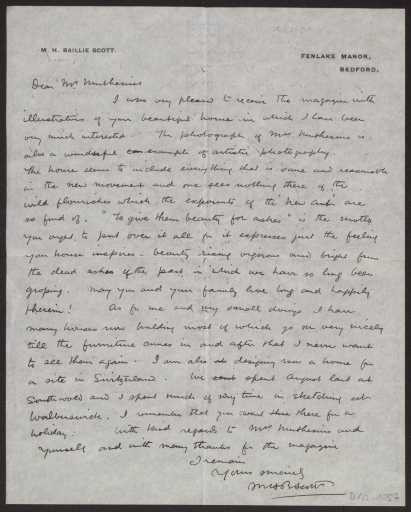 M. H. BAILLIE SCOTT.
FENLAKE MANOR,
BEDFORD.
Dear Mr Muthesius
I was very pleased to receive the magazine with
illustrations of your beautiful house in which I have been
very much interested. The photograph of Mrs Muthesius is
also a wonderful example of artistic photography.
The house seems to include everything that is sane and reasonable
in the new movement and one sees nothing there of the
wild flourishes which the exponents of the New Art are
so fond of. "To give them beauty for ashes" is the motto
you ought to put over it all for it expresses just the feeling
your house inspires - beauty rising vigorous and bright from
the dead ashes of the past in which we have so long been
groping. May you and your family live long and happily
therein! As for me and my small doings I have
many houses now building most of which go on very nicely
till the furniture comes in and after that I never want
to see them again. I am also designing now a house for
a site in Switzerland. We spent August last at
Southwold and I spent much of my time in sketching at
Walberswick. I remember that you were there for a
holiday. With kind regards to Mrs Muthesius and
yourself and with many thanks for the magazine
I remain
Yours sincerely
MHBScott